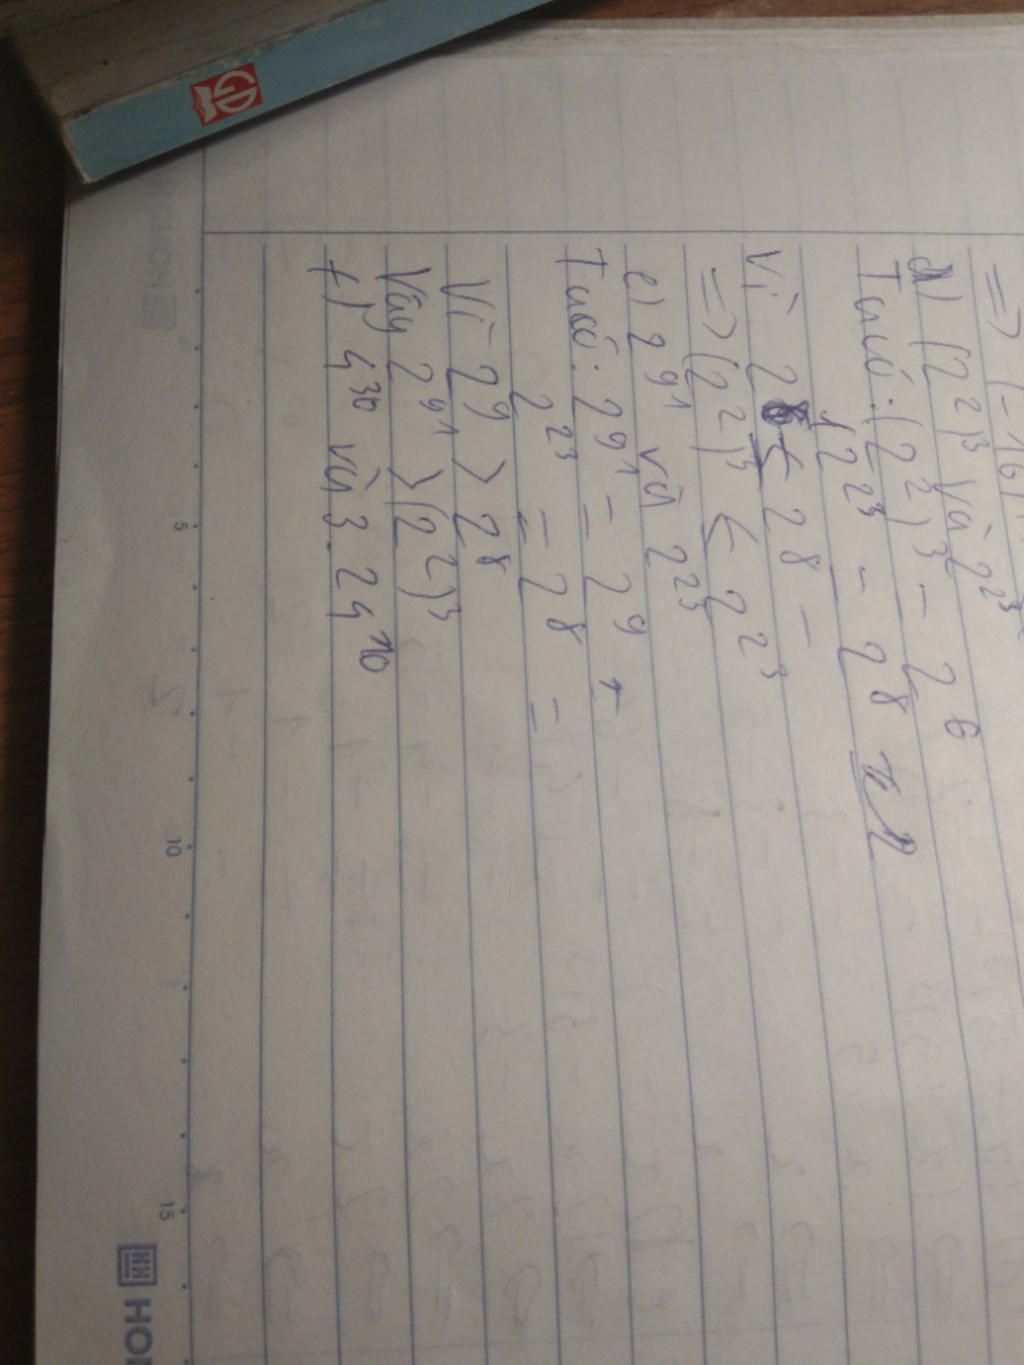 => (-16)
d) (2²)³ và 2²³
Ta có: (2²)³ = 2⁶
2²³ = 2⁸
Vì 2⁶ < 2⁸
=> (2²)³ < 2²³
e) 2⁹¹ và 2²³
Ta có: 2⁹¹ = 2⁹
2²³ = 2⁸ =
Vì 2⁹ > 2⁸
Vậy 2⁹¹ > (2²)³
f) 4³⁰ và 3.24¹⁰
5 10 15
GD
HO